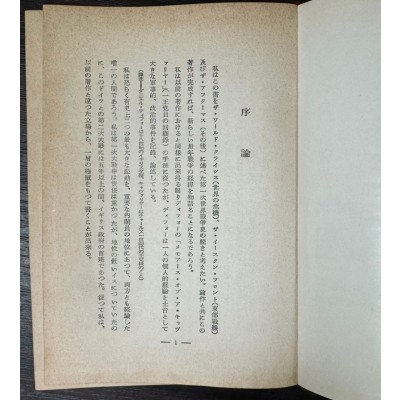 序論
私はこの書をザ・ワールド・クライシス(世界の危機)、ザ・イースタン・フロント(東部戦線)
及びザ・アフターマス(その後)に述べた第一次世界戦争史の続きと考えたい。諸作と共にこの
著作が完成すれば、新らしい卅年戦争の経緯を物語ることになるであろう。
私は以前の著作におけると同様に出来得る限りディフォーの「メモアース・オブ・ア・キャヴ
ァリヤー」(一王党員の回顧録)の手法に従つたが、ディフォーは一人の個人的経験を土台として
大きな軍事的、政治的事件を記録、論議している。
私は恐らく有史上二つの最も大きな動乱を、重要な内閣員の地位にあつて、両方とも経験した
唯一の人間であろう。私は第一次大戦中は責任は重かつたが、地位の低いイスについていたの
に、このドイツとの第二次大戦には五年以上の間、イギリス政府の首班であつた。従つて私は、
以前の著作と違つた立場から、一層の権威をもつて書くことが出来る。
— 1 —